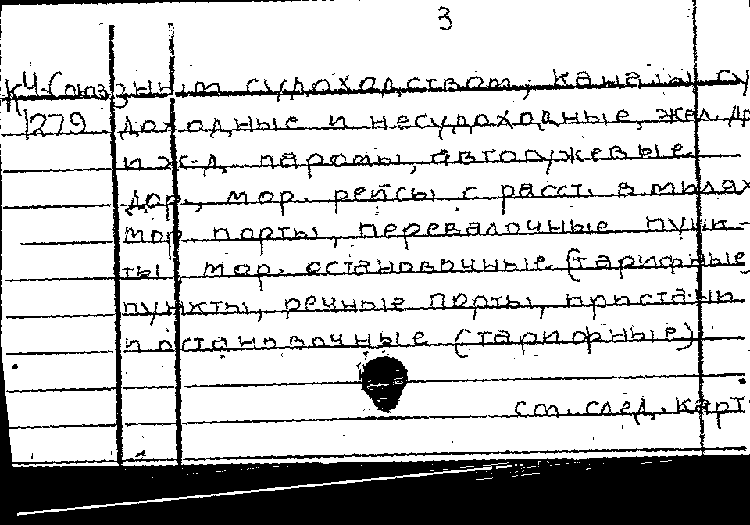 3
К4-Союз
зным судоходством; каналы су
К
1279 доходные и несудоходные, жел. др
и ж-д. паромы, автогужевые
дор., мор. рейсы с расст. в милях
мор. порты, перевалочные пунк-
ты, мор. остановочные (тарифные
пункты, речные порты, пристани
и остановочные (тарифные)
см. след. карт